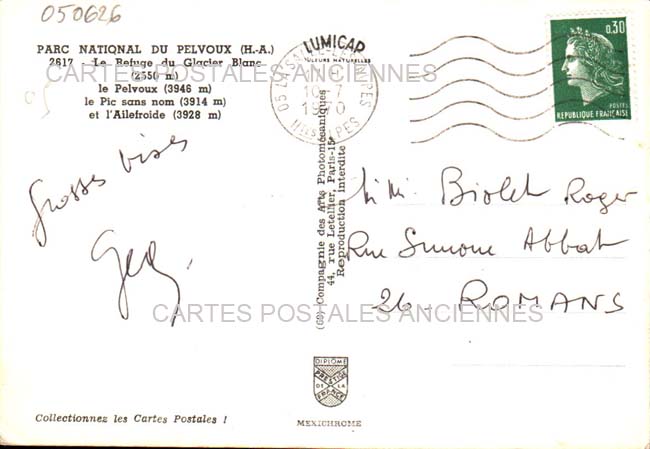 050626
PARC NATIONAL DU PELVOUX (H.-A.)
2617 - Le Refuge du Glacier Blanc
(2550 m)
le Pelvoux (3946 m)
le Pic sans nom (3914 m)
et l'Ailefroide (3928 m)
LUMICAP
COULEURS NATURELLES
05
10-7
HTES ALPES
0,30
POSTES
REPUBLIQUE FRANÇAISE
Grosses bises
Ged
(69) Compagnie des Arts Photomécaniques
44, rue Letellier, Paris-15e
Reproduction Interdite
Biolet Roger
Rue Simone Abbat
26 - ROMANS
CARTES POSTALES ANCIENNES
CARTES POSTALES ANCIENNES
DIPLOME
PRESTIGE
DE LA
FRANCE
MEXICHROME
Collectionnez les Cartes Postales !